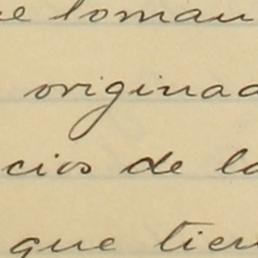 e toman
originad
cios de la
que tien